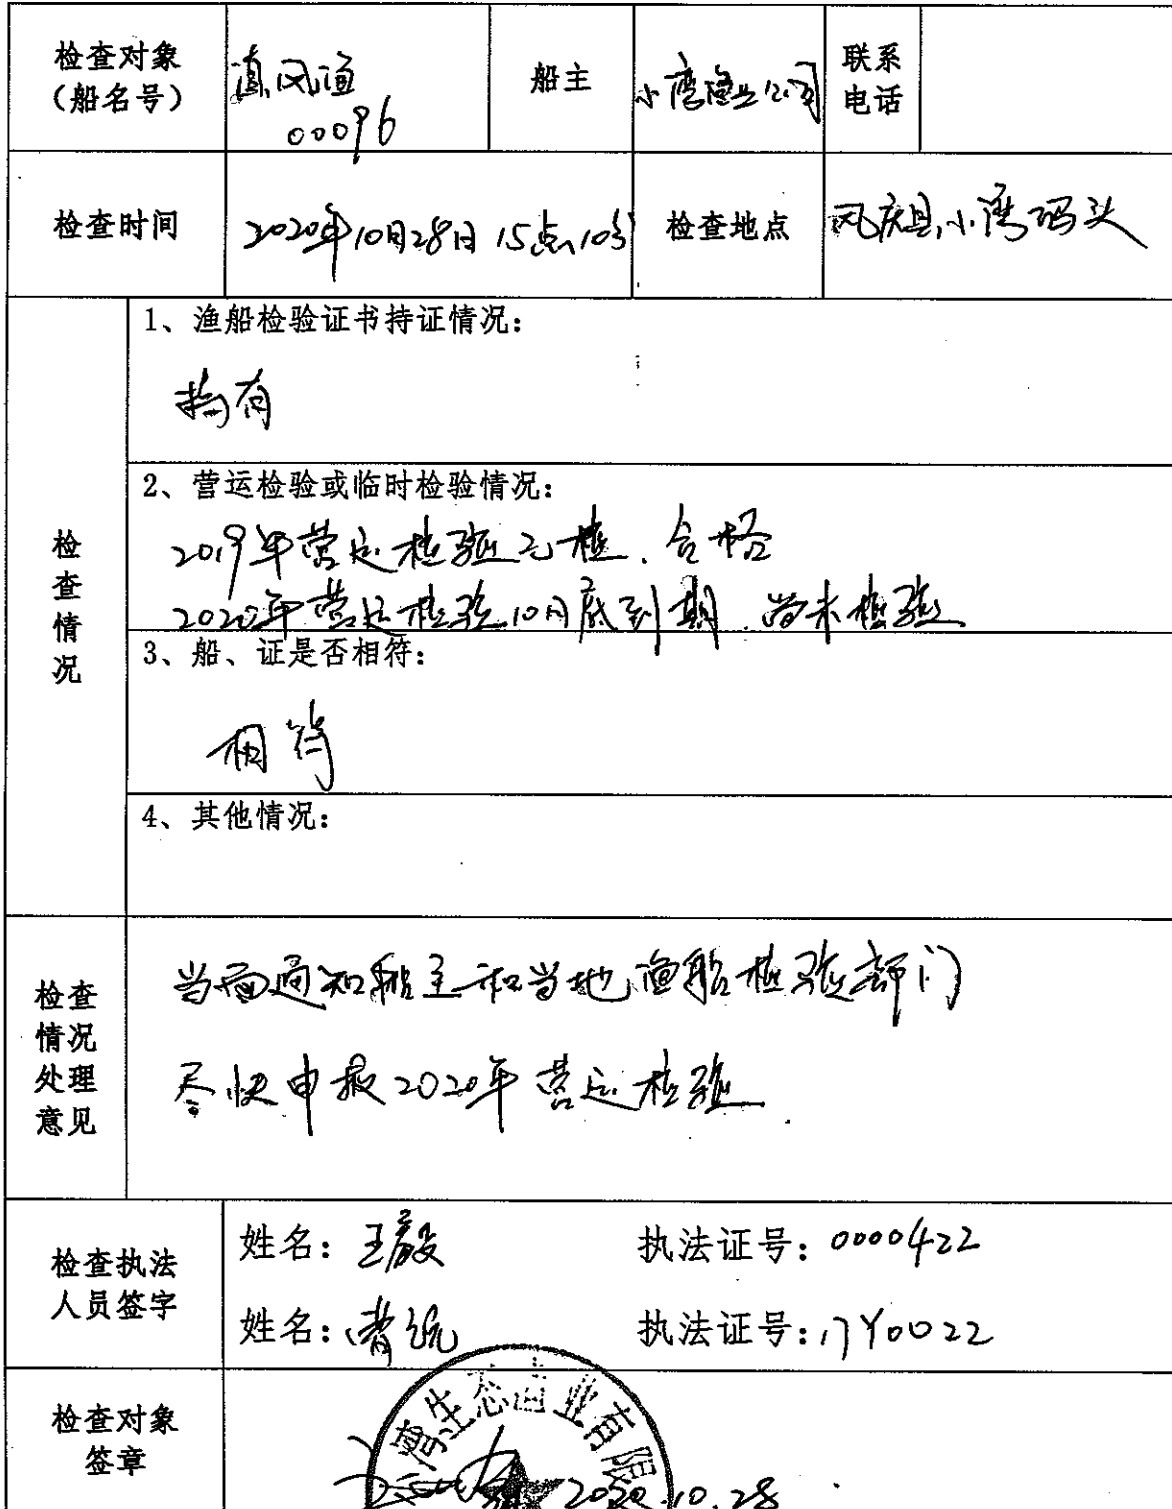 检查对象
（船名号）
滇风渔
00096
船主
小湾渔业公司
联系
电话
检查时间
2020年10月28日 15点10分
检查地点
凤庆县小湾码头
检查情况
1、渔船检验证书持证情况：
持有
2、营运检验或临时检验情况：
2019年营运检验已检、合格
2020年营运检验10月底到期、尚未检验
3、船、证是否相符：
相符
4、其他情况：
检查
情况
处理
意见
当面通知船主和当地渔船检验部门
尽快申报2020年营运检验.
检查执法
人员签字
姓名：王毅
执法证号：0000422
姓名：
执法证号：17Y0022
检查对象
签章
湾生态渔业有限
2020.10.28